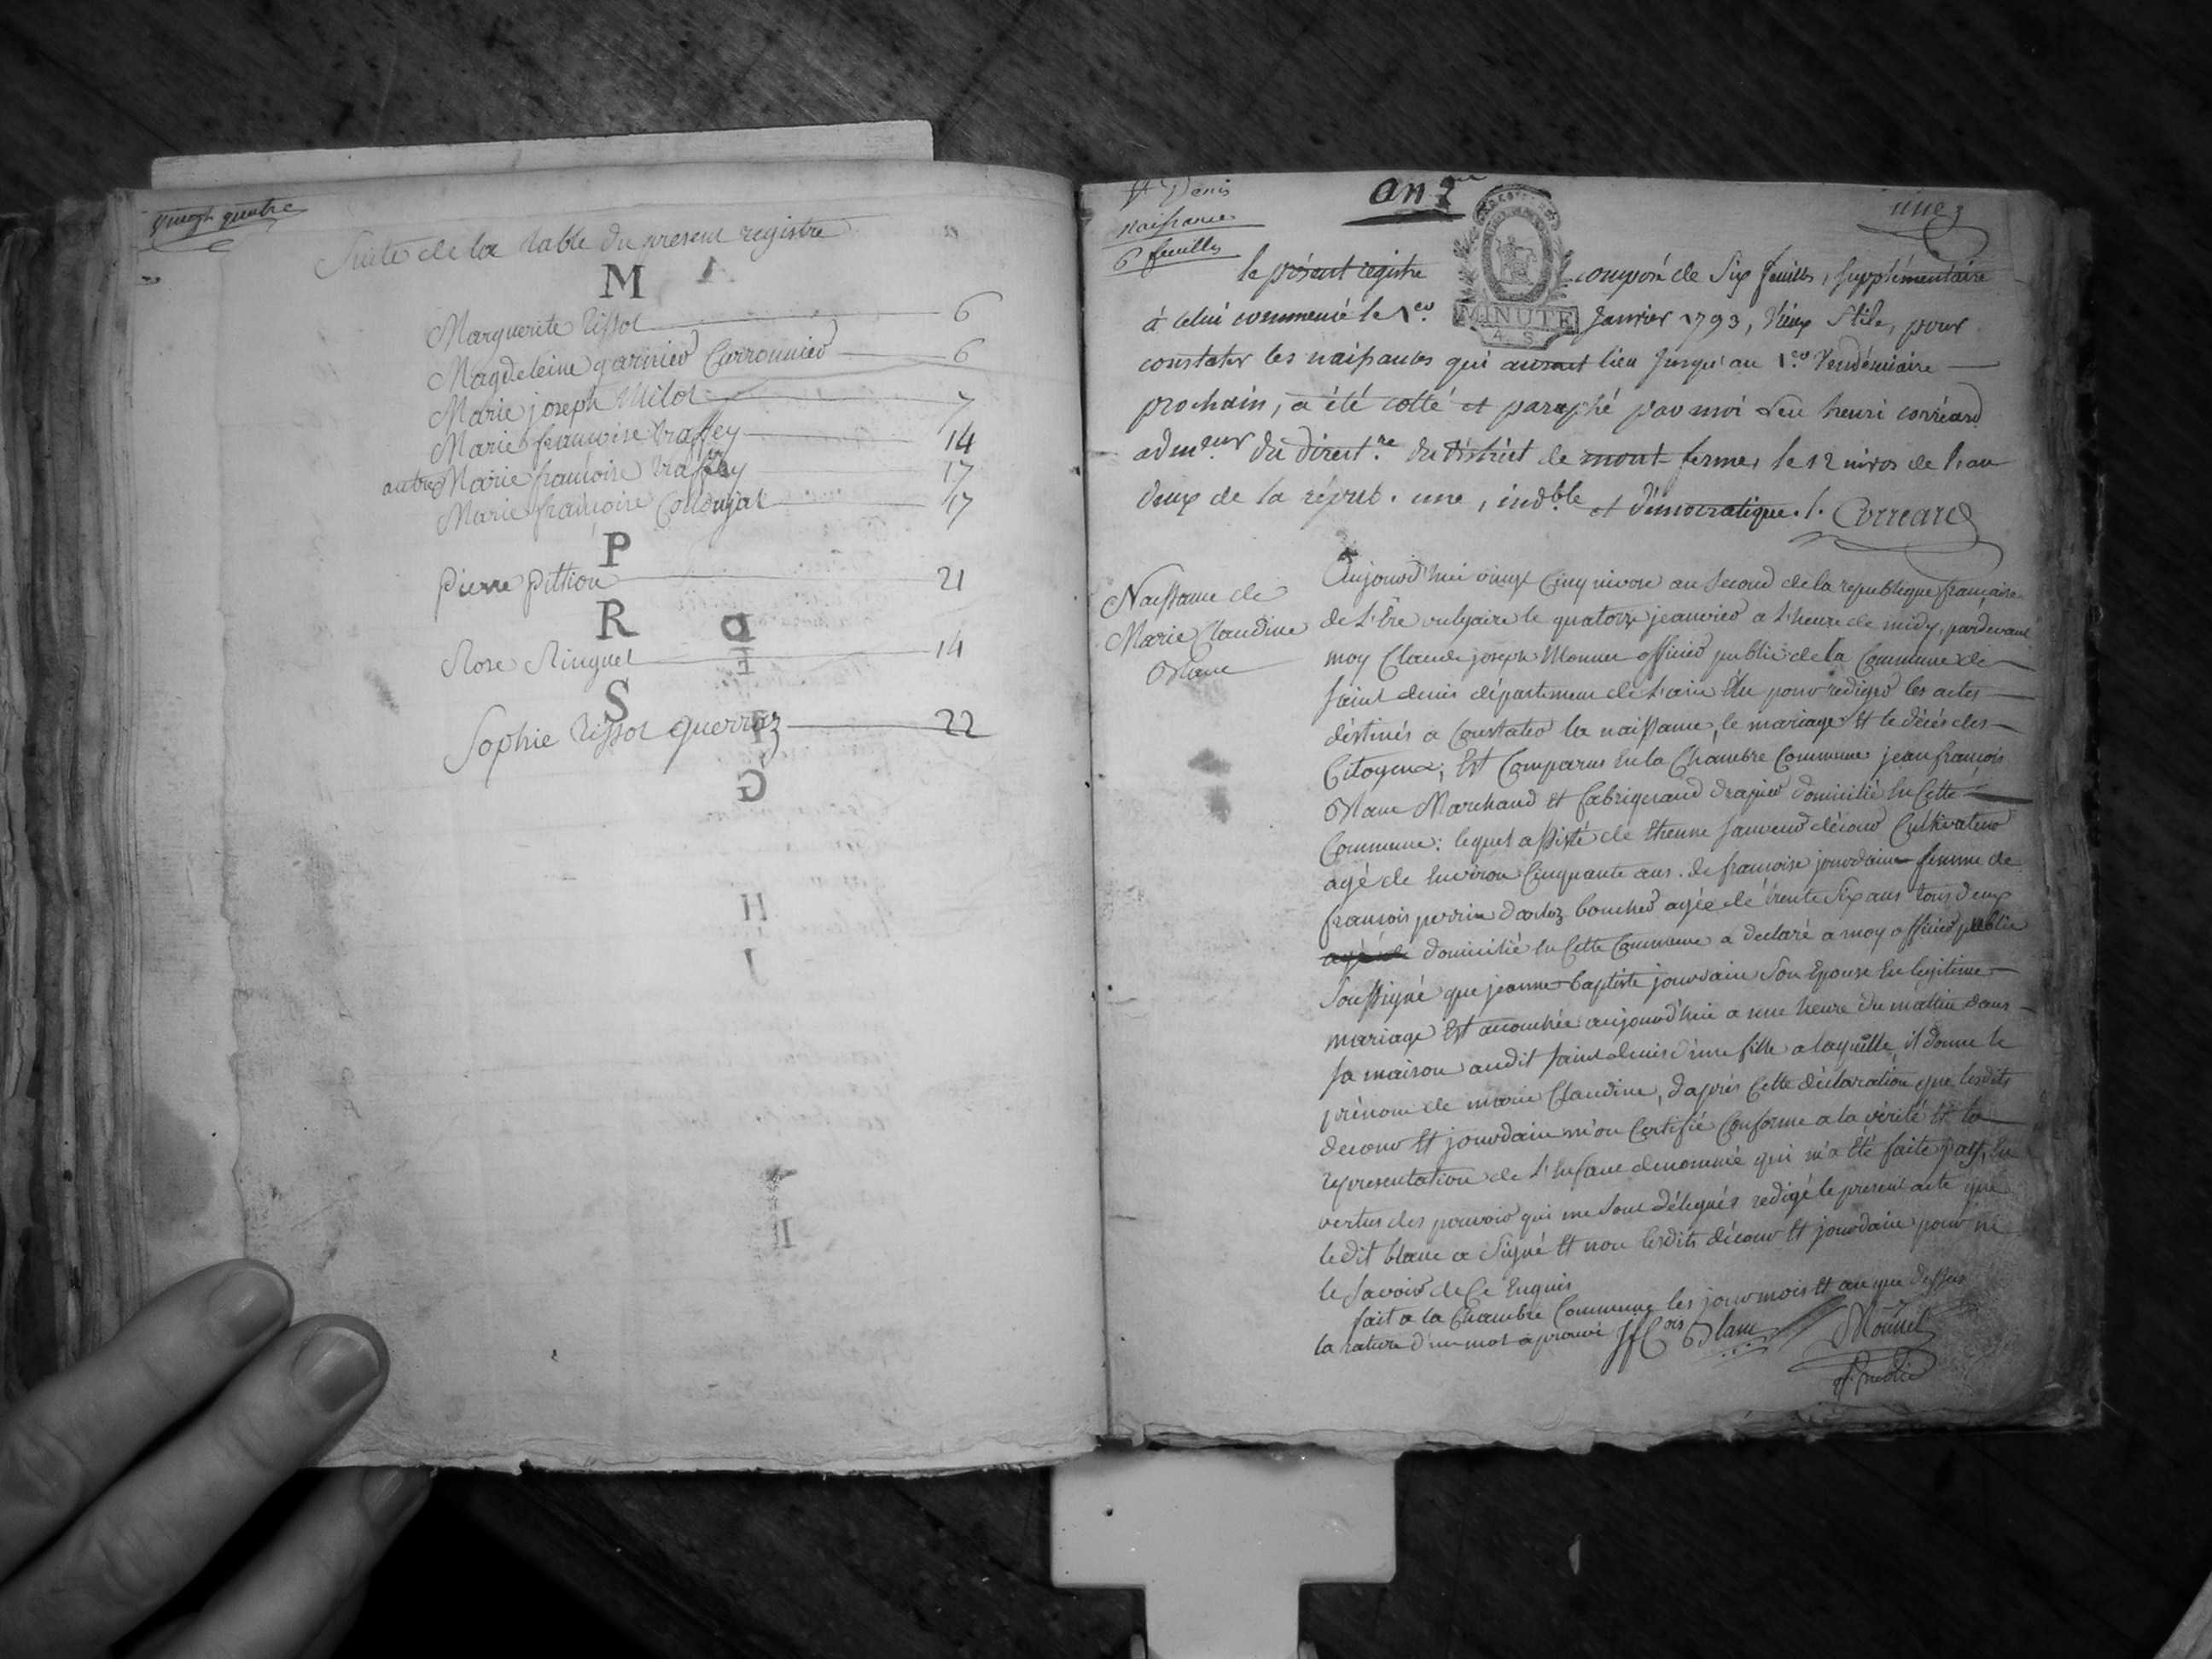 vingt quatre
Suite de la table du present registre
M
Marguerite Tissot 6
Magdeleine garnier Carronnier 6
Marie joseph Milot 7
Marie francoise traffey 14
autre Marie francoise traffey 17
Marie francoise Condujat 17
P
Pierre Pittion 21
R
Rose Ringuet 14
S
Sophie Tissot Guerraz 22
St Denis
naissances
6 feuilles
an 2me
une
le présent registre composé de Six feuilles, supplémentaire
à celui commencé le 1er Janvier 1793, Vieux Stile, pour
MINUTE
constater les naissances qui auront lieu jusqu'au 1er Vendémiaire
prochain, a été cotté et paraphé par moi Leu henri corréard
admeur du directre du District de mont-ferme, le 12 nivos de l'an
deux de la répub. une, indble et démocratique. /. Correard
Naissance de
Marie Claudine
Blanc
Aujourd'hui vingt Cinq nivose an second de la republique française
de L'Ere vulgaire le quatorze jeanvier a L'heure de midy, pardevant
moy Claude joseph Monnet officier public de la Commune de
saint denis département de L'ain Elu pour rediger les actes
déstinés a Constater la naissance, le mariage Et le décés des
Citoyens; Est Comparus En la Chambre Commune jean françois
Blanc Marchand Et fabriquand drapier domicilié En Cette
Commune: lequel assisté de Etienne sauveur décour Cultivateur
agé de Environ Cinquante ans. de françoise jourdain femme de
francois perrin boucher agée de trente Six ans tous deux
domicilié En Cette Commune a declaré a moy officier public
Soussigné que jeanne-baptiste jourdain Son Epouse En legitime
mariage Est accouchée aujourd'hui a une heure du matin dans
sa maison audit saint denis d'une fille a laquelle il donne le
prénom de marie Claudine, d'après Cette déclaration que lesdits
decour Et jourdain m'on Certifié Conforme a la vérité Et la
representation de L'Enfant denommé qui m'a Eté faite j'ay, En
vertus des pouvoir qui me sont délegués redigé le present acte que
ledit blanc a Signé Et non lesdits décour Et jourdain pour ne
le Savoir de Ce Enquis
fait a la Chambre Commune les jour mois Et an que dessus
la rature d'un mot aprouvé Jfcois Blanc Monnet
off. public